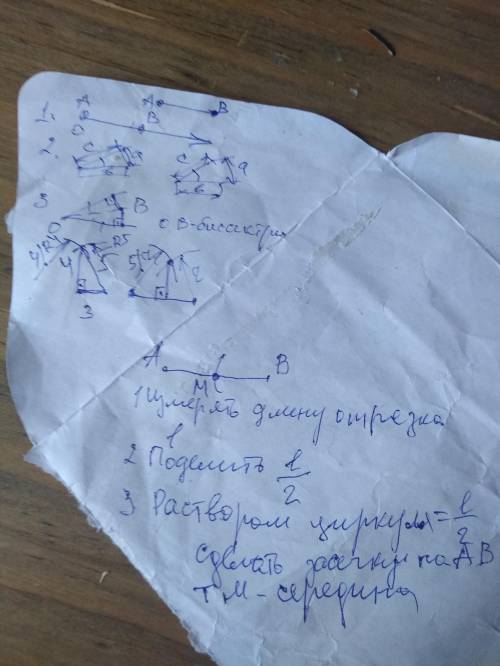 A A B
1. O B
2. C a C a
b b
3 B
O OB-биссектриса
4 R4 R5
4 5 5
3
A M B
1 Измерять длину отрезка
l
2 Поделить l/2
3 Раствором циркуля = l/2
сделать засечку на AB
т M - середина